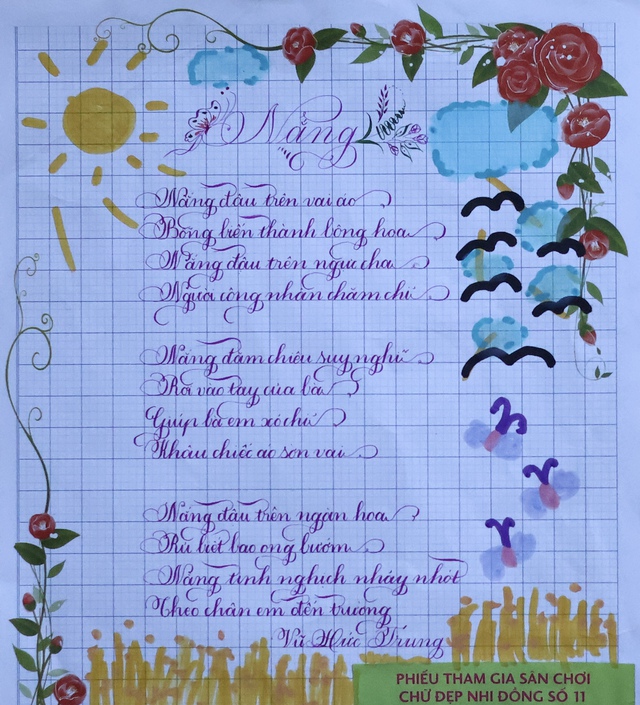 Nắng
Nắng đậu trên vai áo
Bỗng biến thành bông hoa
Nắng đậu trên ngực cha
Người công nhân chăm chỉ
Nắng đăm chiêu suy nghĩ
Rơi vào tay của bà
Giúp bà em xỏ chỉ
Khâu chiếc áo sờn vai
Nắng đậu trên ngàn hoa
Rủ biết bao ong bướm
Nắng tinh nghịch nhảy nhót
Theo chân em đến trường
Vũ Đức Trung
PHIẾU THAM GIA SÂN CHƠI
CHỮ ĐẸP NHI ĐỒNG SỐ 11